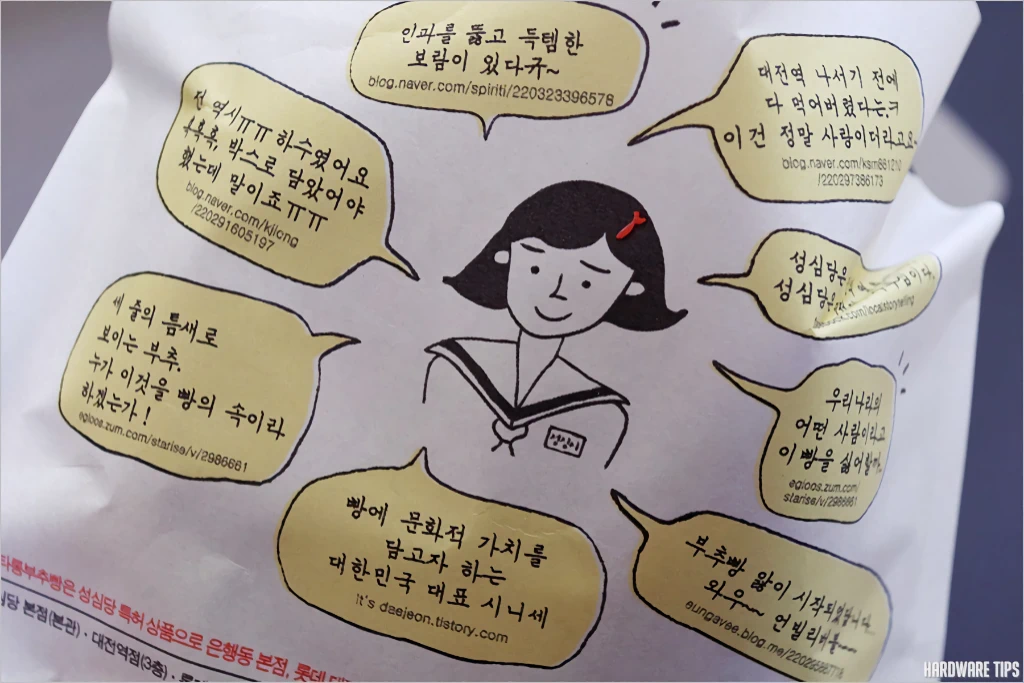 인파를 뚫고 득템한
보람이 있다규~
blog.naver.com/spiriti/220323396578
대전역 나서기 전에
다 먹어버렸다는.ㅋ
이건 정말 사랑이더라고요~
blog.naver.com/ksm881212
/220297386173
전 역시ㅠㅠ 하수였어요
흑흑흑, 박스로 담았어야
했는데 말이죠ㅠㅠ
blog.naver.com/kilong
/220291605197
성심당은
성심당
세 줄의 틈새로
보이는 부추.
누가 이것을 빵의 속이라
하겠는가!
egloos.zum.com/starise/v/2986661
우리나라의
어떤 사람이라고
이 빵을 싫어할까.
egloos.zum.com/
starise/v/2986661
성심이
빵에 문화적 가치를
담고자 하는
대한민국 대표 시니세
it's daejeon.tistory.com
부추빵 앓이 시작되었답니다..
와우~~ 언빌리버블~~
eungavee.blog.me/220
타통부추빵은 성심당 특허 상품으로 은행동 본점, 롯데
심당 본점(본관) · 대전역점(3층) ·
HARDWARE TIPS